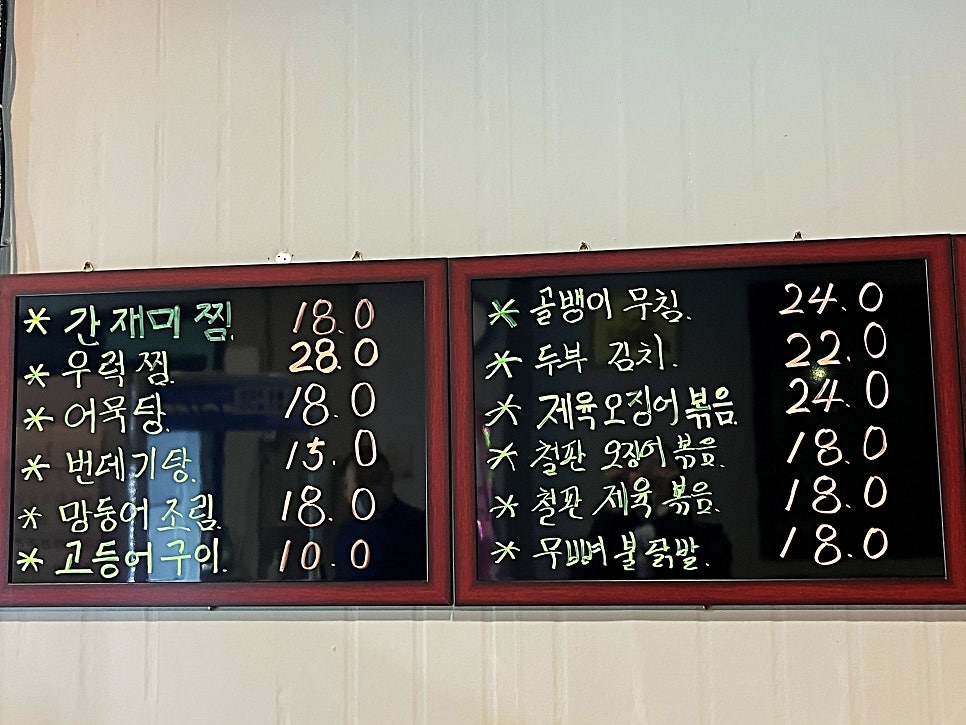 * 간재미 찜. 18.0
* 우럭 찜. 28.0
* 어묵탕. 18.0
* 번데기탕. 15.0
* 망둥어 조림. 18.0
* 고등어구이. 10.0
* 골뱅이 무침. 24.0
* 두부 김치. 22.0
* 제육오징어볶음. 24.0
* 철판 오징어볶음. 18.0
* 철판 제육 볶음. 18.0
* 무뼈불닭발. 18.0